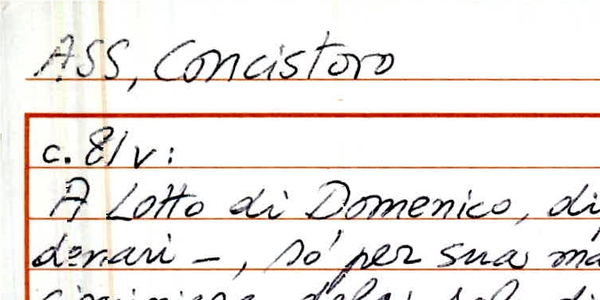 ASS, Concistoro
c. 81v:
A Lotto di Domenico, di
denari —, so' per sua